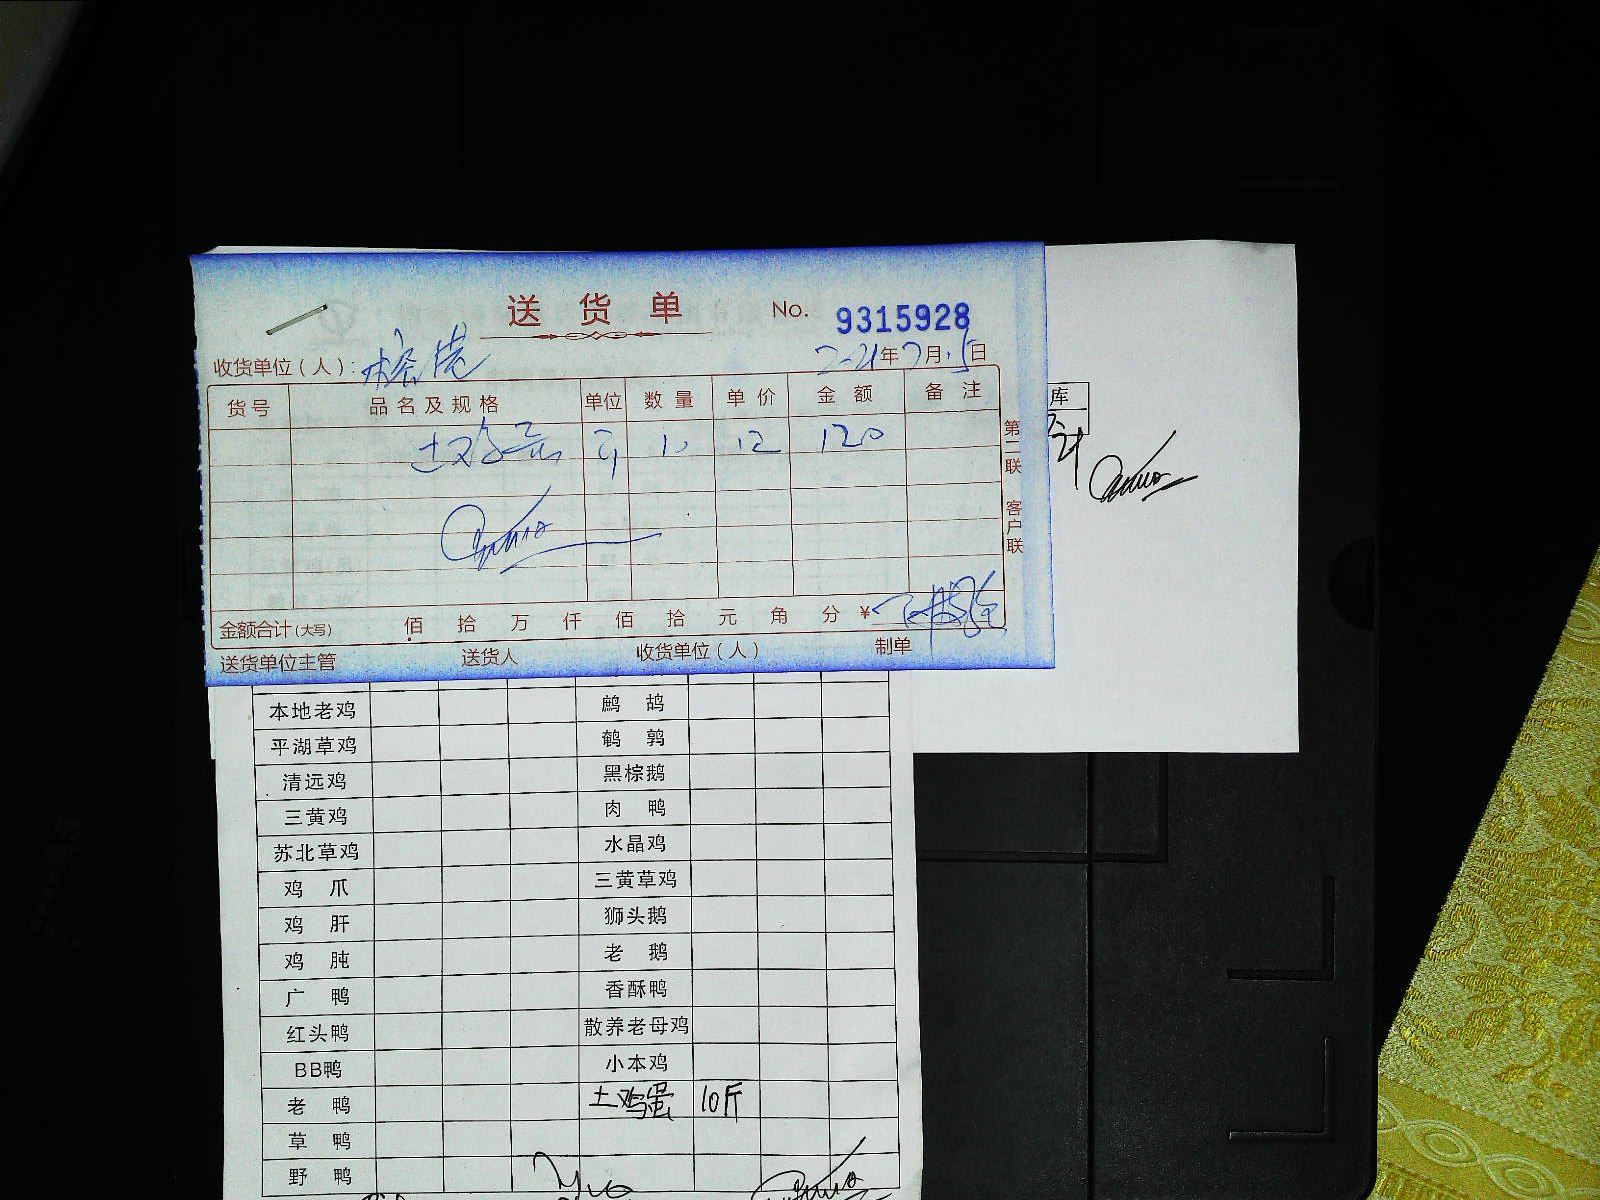 送货单 No. 9315928
收货单位(人):
年7月15日
货号 品名及规格 单位 数量 单价 金额 备注
土鸡蛋 斤 10 12 120
第二联 客户联
金额合计(大写) 佰 拾 万 仟 佰 拾 元 角 分 ¥
送货单位主管 送货人 收货单位(人) 制单
库
本地老鸡 鹧鸪
平湖草鸡 鹌鹑
清远鸡 黑棕鹅
三黄鸡 肉鸭
苏北草鸡 水晶鸡
鸡爪 三黄草鸡
鸡肝 狮头鹅
鸡肫 老鹅
广鸭 香酥鸭
红头鸭 散养老母鸡
BB鸭 小本鸡
老鸭 土鸡蛋 10斤
草鸭
野鸭